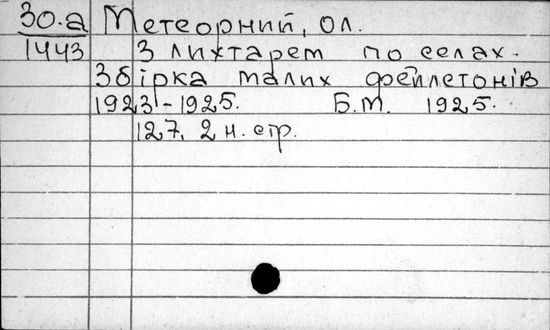 30.а Метеорний, ол.
1443 З лихтарем по селах.
Збірка малих фейлетонів
1923-1925. Б.м. 1925.
127, 2 н. стр.